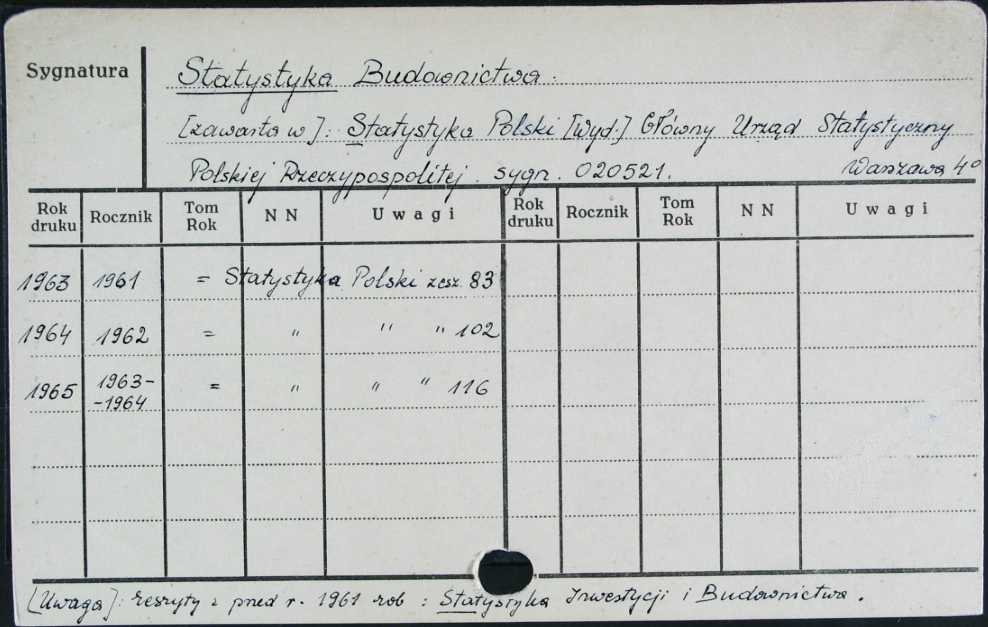 Sygnatura
Statystyka Budownictwa.
[zawarta w]: Statystyka Polski [Wyd.] Główny Urząd Statystyczny
Polskiej Rzeczypospolitej. sygn. 020521. Warszawa 4°
Rok druku Rocznik Tom Rok NN Uwagi Rok druku Rocznik Tom Rok NN Uwagi
1963 1961 = Statystyka Polski zesz. 83
1964 1962 = " " " 102
1965 1963- -1964 = " " " 116
[Uwaga]: zeszyty z przed r. 1961 zob: Statystyka Inwestycji i Budownictwa.